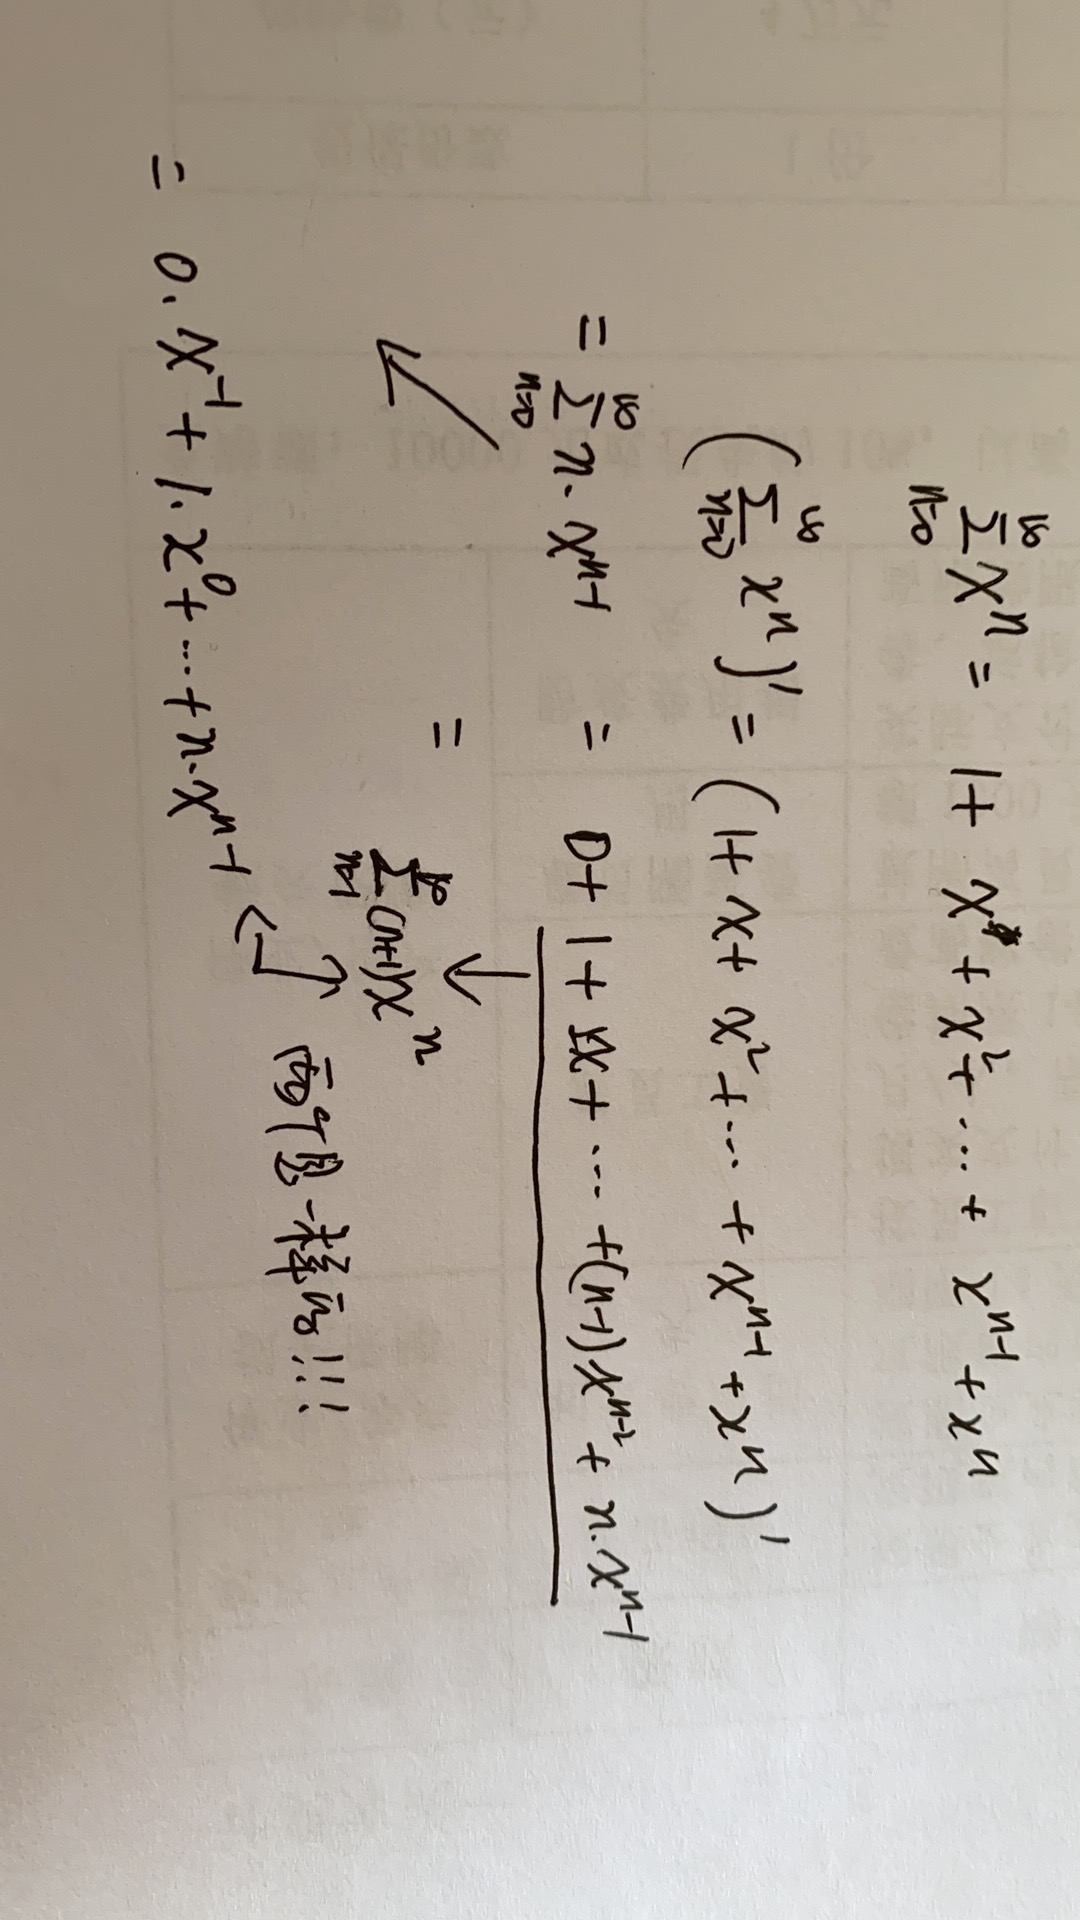 ∞
Σ xⁿ = 1 + x + x² + ⋯ + xⁿ⁻¹ + xⁿ
n=0
(∞
Σ xⁿ)′ = (1 + x + x² + ⋯ + xⁿ⁻¹ + xⁿ)′
n=0
= ∞
Σ n·xⁿ⁻¹ = 0 + 1 + x + ⋯ + (n-1)xⁿ⁻² + n·xⁿ⁻¹
n=0
↙ ↓
= Σ (n+1)xⁿ
n=1
两个是一样的!!!
= 0·x⁻¹ + 1·x⁰ + ⋯ + n·xⁿ⁻¹